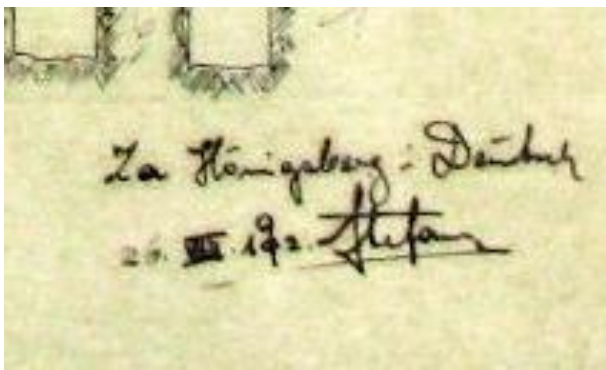 Za Königsberg: Deutsch
26. VII. 192. Stefan